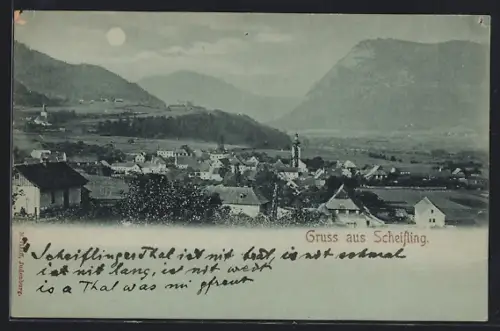 Gruss aus Scheifling.
Scheiflinger Thal ist nit breit, is nit schmal
ist nit lang, ist nit weit
is a Thal was mi gfreut
Judenburg.